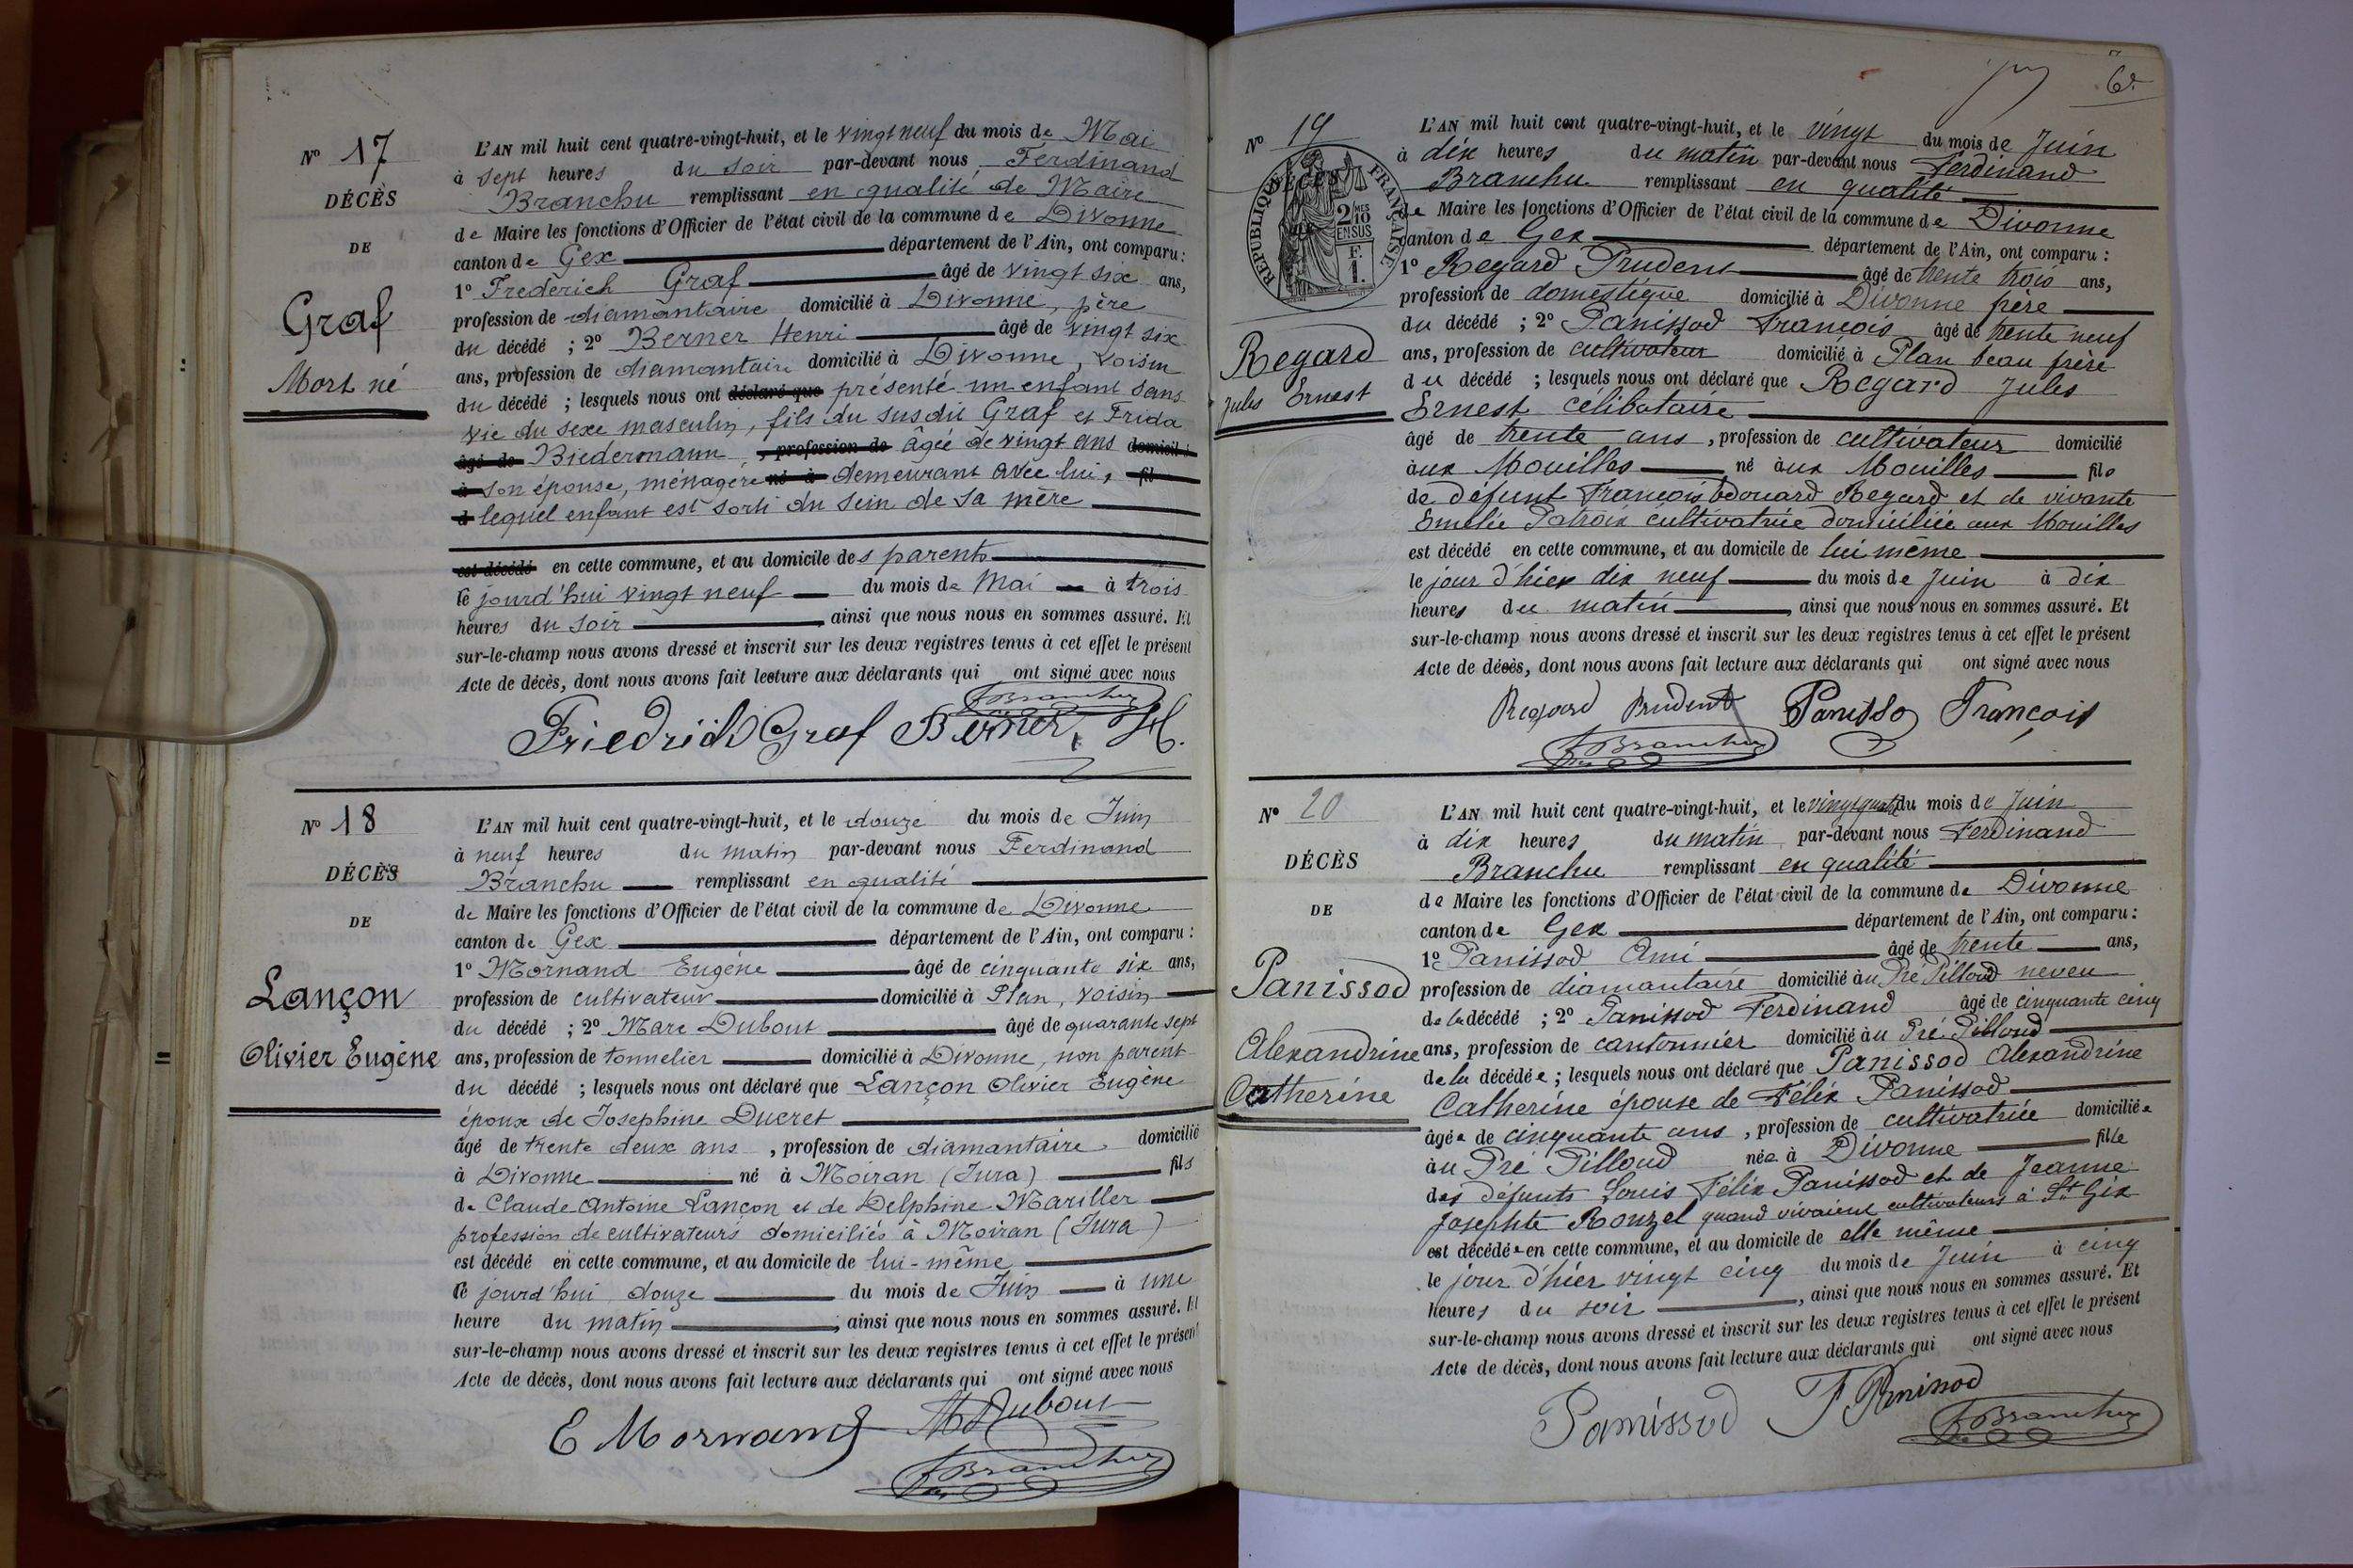 Nº 17
DÉCÈS
DE
Graf
Mort né
L'AN mil huit cent quatre-vingt-huit, et le vingt neuf du mois de Mai
à sept heures du soir par-devant nous Ferdinand
Branchu remplissant en qualité de Maire
de Maire les fonctions d'Officier de l'état civil de la commune de Divonne
canton de Gex département de l'Ain, ont comparu :
1º Frederich Graf âgé de vingt six ans,
profession de diamantaire domicilié à Divonne, père
du décédé ; 2º Berner Henri âgé de vingt six
ans, profession de diamantaire domicilié à Divonne, voisin
du décédé ; lesquels nous ont déclaré que présenté un enfant sans
vie du sexe masculin, fils du susdit Graf et Frida
âgé de Biedermann, profession de âgée de vingt ans domicilié
à son épouse, ménagère né à demeurant avec lui, fil
d lequel enfant est sorti du sein de sa mère
est décédé en cette commune, et au domicile des parents
le jourd'hui vingt neuf du mois de Mai à trois
heures du soir, ainsi que nous nous en sommes assuré. Et
sur-le-champ nous avons dressé et inscrit sur les deux registres tenus à cet effet le présent
Acte de décès, dont nous avons fait lecture aux déclarants qui ont signé avec nous
F Branchu
Friedrich Graf Berner, H.
Nº 18
DÉCÈS
DE
Lançon
Olivier Eugène
L'AN mil huit cent quatre-vingt-huit, et le douze du mois de Juin
à neuf heures du matin par-devant nous Ferdinand
Branchu remplissant en qualité
de Maire les fonctions d'Officier de l'état civil de la commune de Divonne
canton de Gex département de l'Ain, ont comparu :
1º Mornand Eugène âgé de cinquante six ans,
profession de cultivateur domicilié à Plan, voisin
du décédé ; 2º Marc Dubout âgé de quarante sept
ans, profession de tonnelier domicilié à Divonne, non parent
du décédé ; lesquels nous ont déclaré que Lançon Olivier Eugène
époux de Josephine Ducret
âgé de trente deux ans, profession de diamantaire domicilié
à Divonne né à Moiran (Jura) fils
de Claude Antoine Lançon et de Delphine Mariller
profession de cultivateurs domiciliés à Moiran (Jura)
est décédé en cette commune, et au domicile de lui-même
le jourd'hui douze du mois de Juin à une
heure du matin, ainsi que nous nous en sommes assuré. Et
sur-le-champ nous avons dressé et inscrit sur les deux registres tenus à cet effet le présent
Acte de décès, dont nous avons fait lecture aux déclarants qui ont signé avec nous
E Mornand M Dubout
F Branchu
6
Nº 19
DÉCÈS
RÉPUBLIQUE FRANÇAISE
2 MES
10
EN SUS
F.
1.
Regard
Jules Ernest
L'AN mil huit cent quatre-vingt-huit, et le vingt du mois de Juin
à dix heures du matin par-devant nous Ferdinand
Branchu remplissant en qualité
de Maire les fonctions d'Officier de l'état civil de la commune de Divonne
canton de Gex département de l'Ain, ont comparu :
1º Regard Prudent âgé de trente trois ans,
profession de domestique domicilié à Divonne frère
du décédé ; 2º Panissod François âgé de trente neuf
ans, profession de cultivateur domicilié à Plan beau frère
du décédé ; lesquels nous ont déclaré que Regard Jules
Ernest célibataire
âgé de trente ans, profession de cultivateur domicilié
àux Mouilles né àux Mouilles fils
de défunt François Edouard Regard et de vivante
Emélie Patroix cultivatrice domiciliée aux Mouilles
est décédé en cette commune, et au domicile de lui même
le jour d'hier dix neuf du mois de Juin à dix
heures du matin, ainsi que nous nous en sommes assuré. Et
sur-le-champ nous avons dressé et inscrit sur les deux registres tenus à cet effet le présent
Acte de décès, dont nous avons fait lecture aux déclarants qui ont signé avec nous
Regard Prudent Panisso François
F Branchu
Nº 20
DÉCÈS
DE
Panissod
Alexandrine
Catherine
L'AN mil huit cent quatre-vingt-huit, et le vingt quatre du mois de Juin
à dix heures du matin par-devant nous Ferdinand
Branchu remplissant en qualité
de Maire les fonctions d'Officier de l'état civil de la commune de Divonne
canton de Gex département de l'Ain, ont comparu :
1º Panissod Ami âgé de trente ans,
profession de diamantaire domicilié àu Pré Pilloud neveu
de la décédé ; 2º Panissod Ferdinand âgé de cinquante cinq
ans, profession de cantonnier domicilié àu Pré Pilloud
de la décédée ; lesquels nous ont déclaré que Panissod Alexandrine
Catherine épouse de Félix Panissod
âgée de cinquante ans, profession de cultivatrice domiciliée
àu Pré Pilloud née à Divonne fille
des défunts Louis Félix Panissod et de Jeanne
Josephte Rouzel quand vivaient cultivateurs à St Gix
est décédée en cette commune, et au domicile de elle même
le jour d'hier vingt cinq du mois de Juin à cinq
heures du soir, ainsi que nous nous en sommes assuré. Et
sur-le-champ nous avons dressé et inscrit sur les deux registres tenus à cet effet le présent
Acte de décès, dont nous avons fait lecture aux déclarants qui ont signé avec nous
Panissod F Panissod
F Branchu